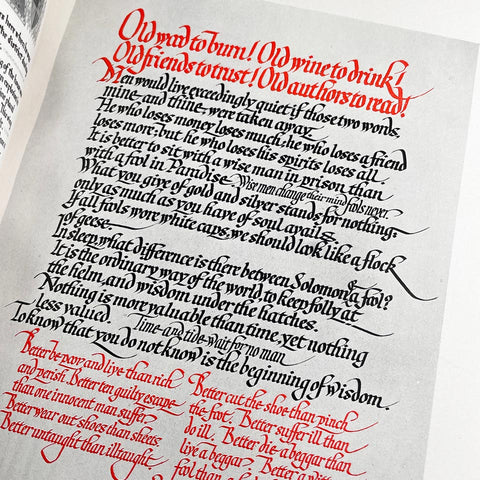 Old wood to burn! Old wine to drink!
Old friends to trust! Old authors to read!
Men would live exceedingly quiet if those two words,
mine and thine, were taken away.
He who loses money loses much; he who loses a friend
loses more; but he who loses his spirits loses all.
It is better to sit with a wise man in prison than
with a fool in Paradise. Wise men change their mind fools never.
What you give of gold and silver stands for nothing;
only as much as you have of soul avails.
If all fools wore white caps, we should look like a flock
of geese.
In sleep, what difference is there between Solomon & a fool?
It is the ordinary way of the world, to keep folly at
the helm, and wisdom under the hatches.
Nothing is more valuable than time, yet nothing
less valued. Time and tide wait for no man
To know that you do not know is the beginning of wisdom.
Better be poor and live than rich
and perish. Better ten guilty escape
than one innocent man suffer.
Better wear out shoes than sheets.
Better untaught than ill taught.
Better cut the shoe than pinch
the foot. Better suffer ill than
do ill. Better die a beggar than
live a beggar. Better a
fool than a